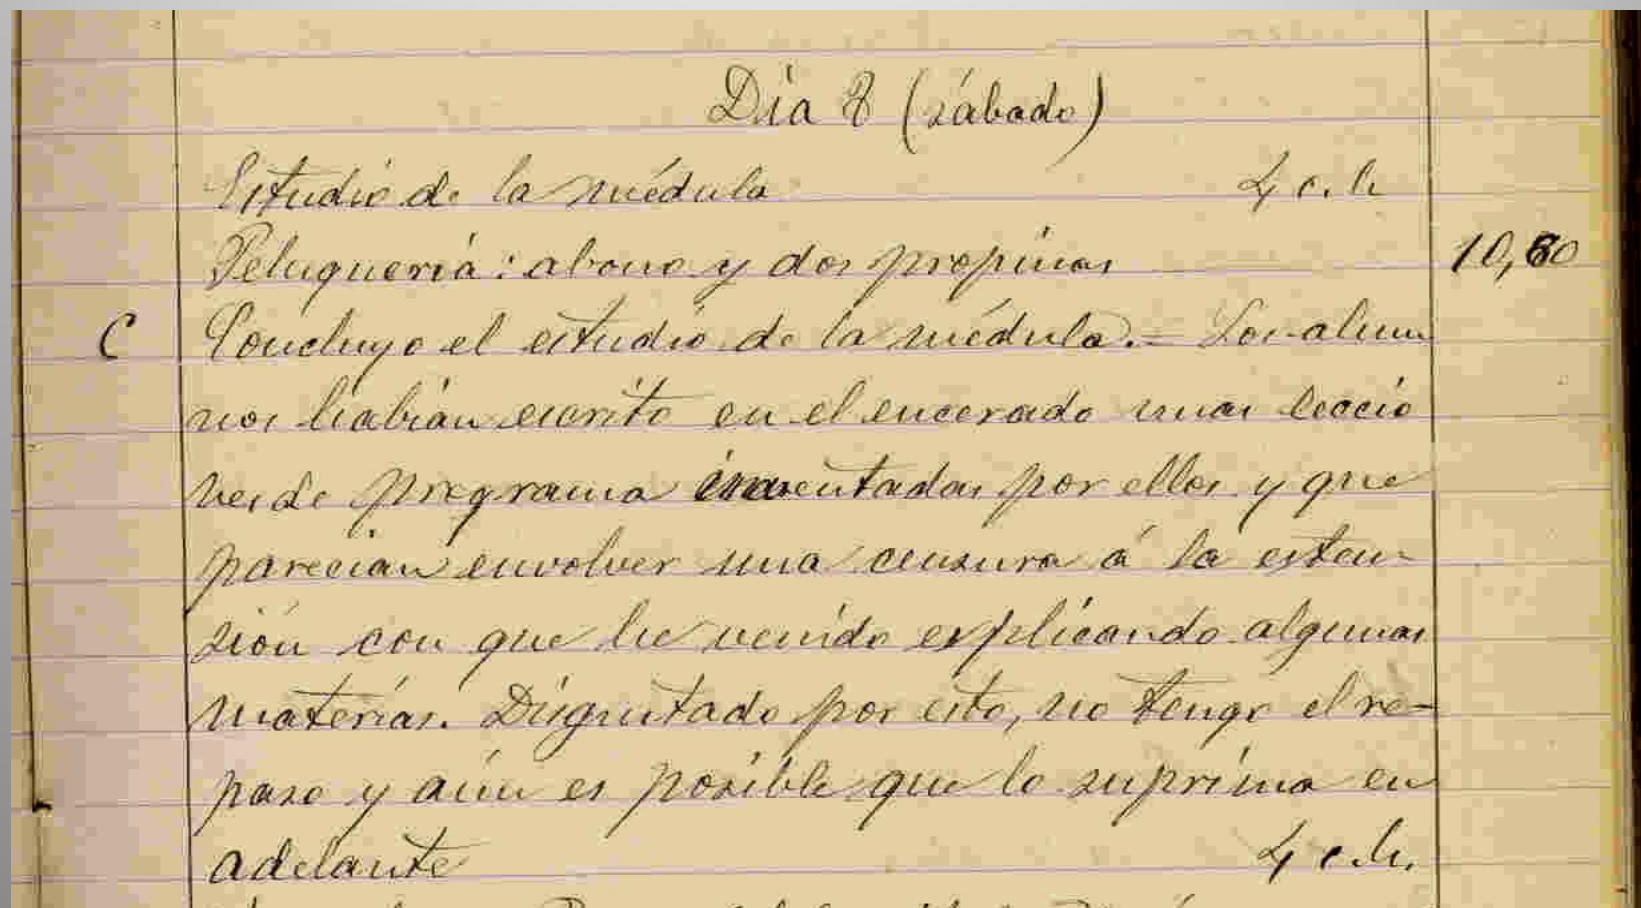 Día 8 (sábado)
Estudio de la médula 4 c. h
Peluquería: abono y dos propinas 10,60
C Concluyo el estudio de la médula. = Los alum
nos habían escrito en el encerado unas leccio
nes de programa inventadas por ellos y que
parecían envolver una censura á la esten-
sión con que he venido explicando algunas
materias. Disgustado por esto, no tengo el re-
paso y aún es posible que lo suprima en
adelante 4 c. h.